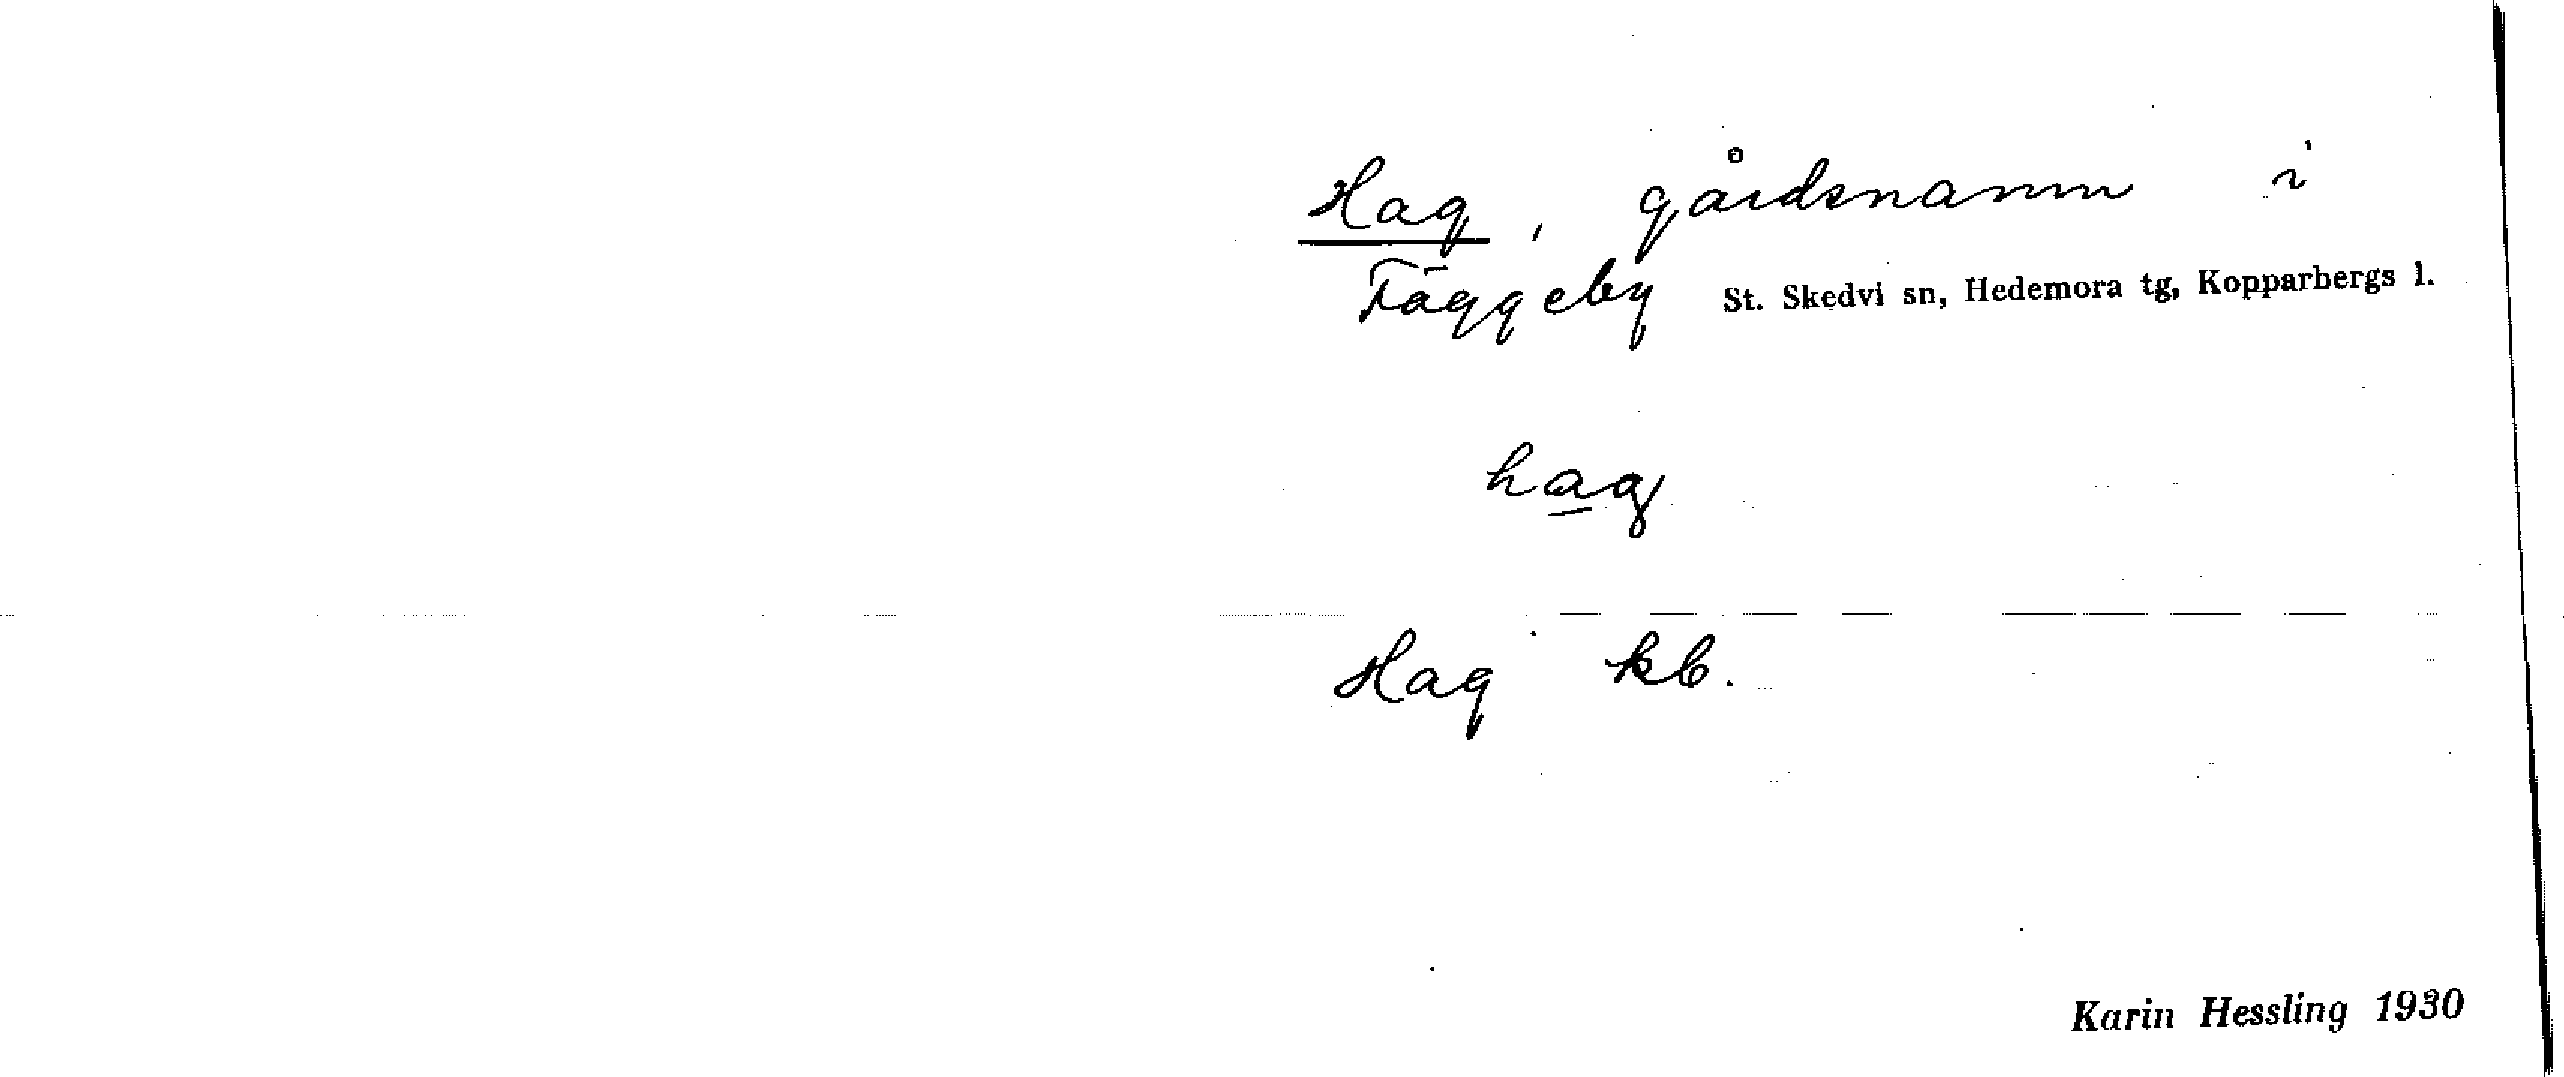 Hag, gårdsnamn i
Fäggeby St. Skedvi sn, Hedemora tg, Kopparbergs l.
hag
Hag kb.
Karin Hessling 1930